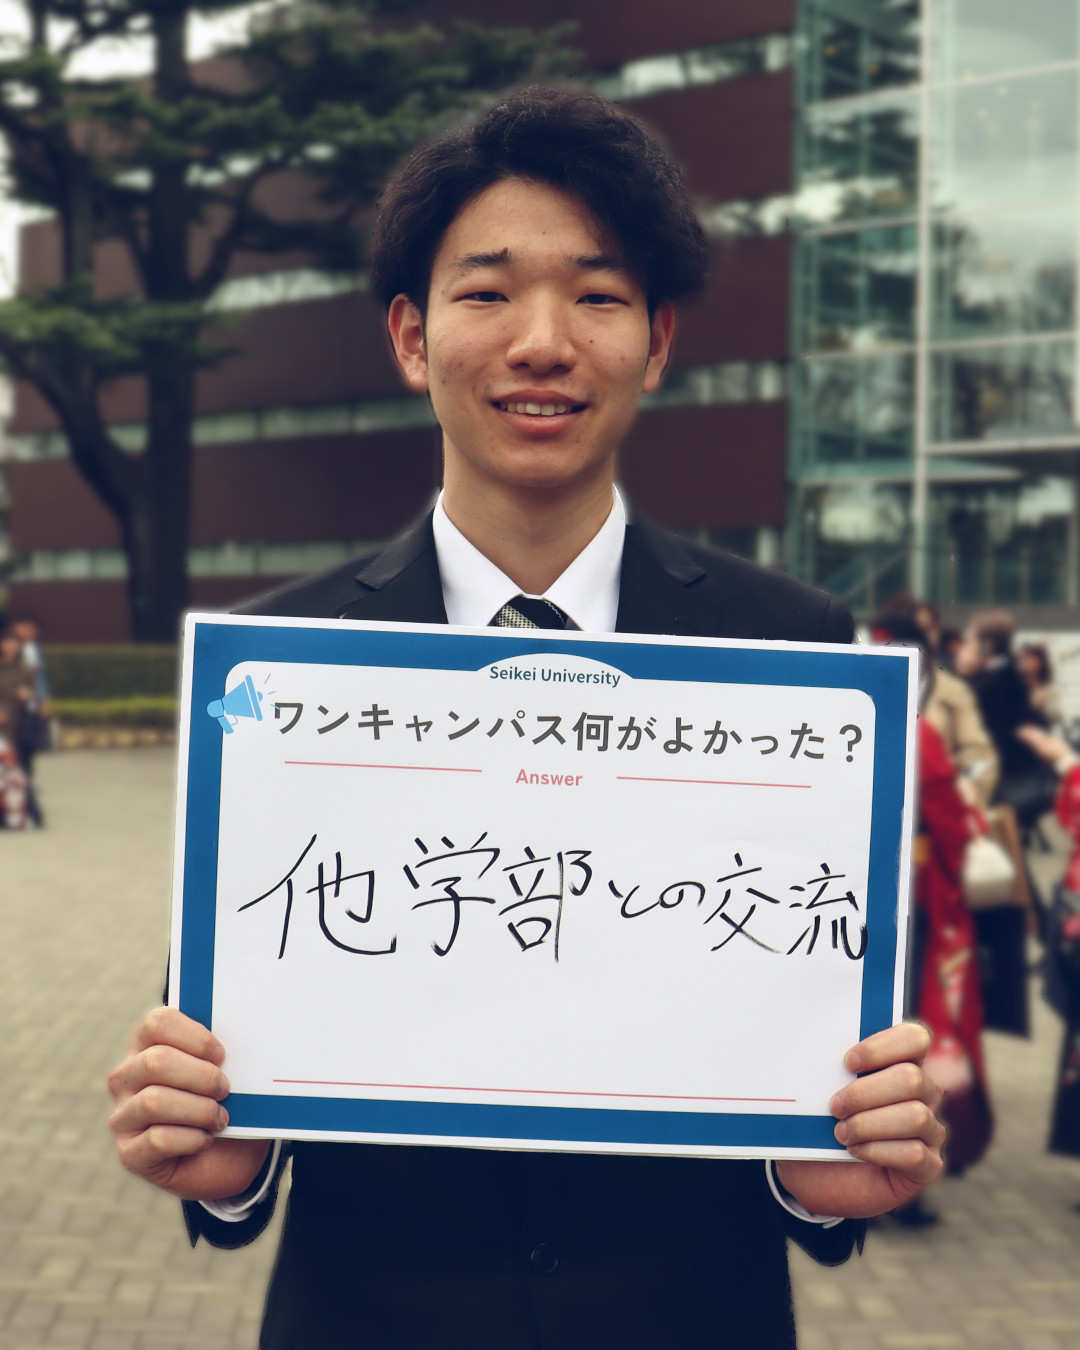 Seikei University
ワンキャンパス何がよかった？
Answer
他学部との交流